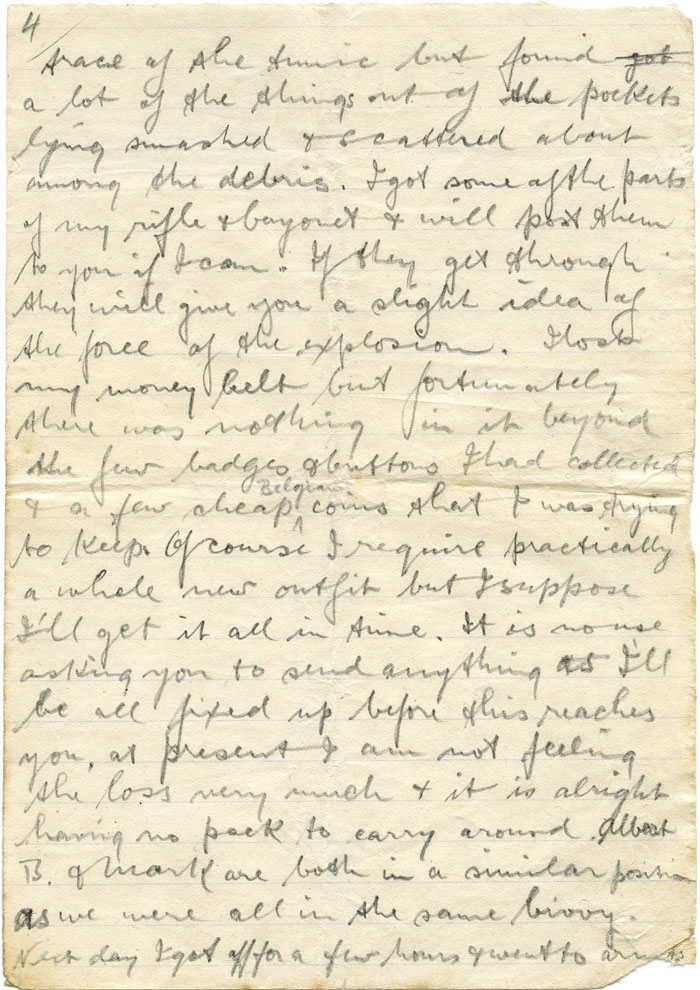 4
trace of the tunic but found got
a lot of the things out of the pockets
lying smashed & scattered about
among the debris. I got some of the parts
of my rifle & bayonet & will post them
to you if I can. If they get through
they will give you a slight idea of
the force of the explosion. I lost
my money belt but fortunately
there was nothing in it beyond
the few badges & buttons I had collected
& a few cheap Belgian coins that I was trying
to keep. Of course I require practically
a whole new outfit but I suppose
I'll get it all in time. It is no use
asking you to send anything as I'll
be all fixed up before this reaches
you, at present I am not feeling
the loss very much & it is alright
having no pack to carry around. Albert
B. & Mark are both in a similar position
as we were all in the same bivvy.
Next day I got off for a few hours & went to